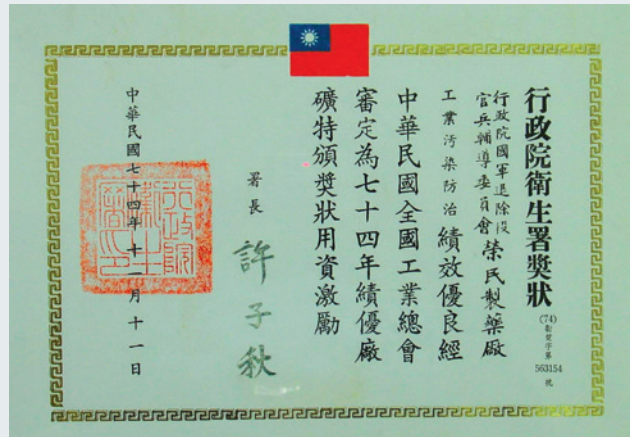 行政院衛生署獎狀
(74)衛獎字第563154號
行政院國軍退除役
官兵輔導委員會
榮民製藥廠
工業污染防治績效優良經
中華民國全國工業總會
審定為七十四年績優廠
礦特頒獎狀用資激勵
署長 許子秋
中華民國七十四年十一月十一日
行政院衛生署印